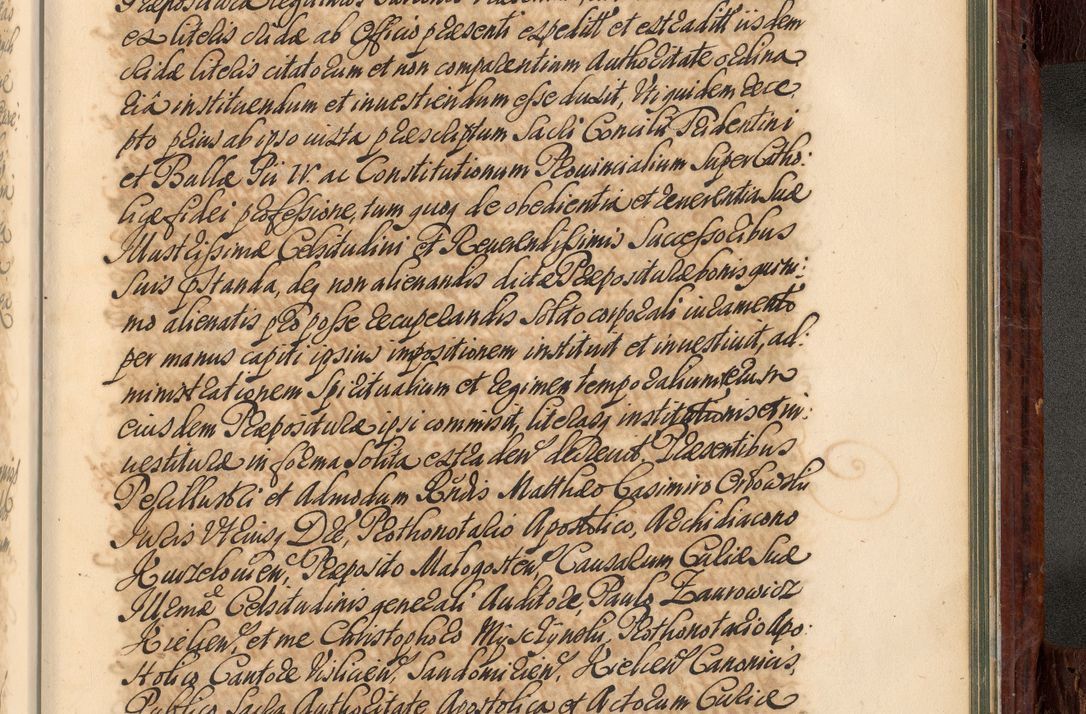 ex literis dictæ ab Officio præsenti expedit' et extradit' iisdem
dictæ literis citatorum et non comparentium Authoritate ordina
riâ instituendum et inuestiendum esse duxit, Vtiquidem rece
pto prius ab ipso iuxta præscriptum Sacri Concilii Tridentini
et Bullæ Pii IV ac Constitutionum Prouincialium super Catho:
licæ fidei professione, tum quoq de obedientia et reuerentia Suæ
Illustrissimæ Celsitudini et Reuerendissimis Successoribus
suis præstanda, deq non alienandis dictæ Præposituræ bonis quini:
mo alienatis pro posse recuperandis solito corporali iuramento
per manus capiti ipsius impositionem instituit et inuestiuit, ad:
ministrationem Spiritualium et regimen temporalium rerum
eiusdem Præposituræ ipsi commisit, literasq institutionis et in:
uestituræ in forma solita extraden' decreuit. Præsentibus
Perillustri et Admodum Rndis Matthæo Casimiro Orłowski
Iuris Vtriusq Dre, Prothonotario Apostolico, Archidiacono
Kurzelouien', Præposito Malogosten', Causarum Curiæ Suæ
Illmæ Celsitudinis generali Auditore, Paulo Zaurowicz
Kielcen', et me Christophoro Mysczynski, Prothonotario Apo:
stolico Cantore Vislicien', Sandomirien', Kielcen' Canonicis,
Publico Sacra Authoritate Apostolica et Actorum Curiæ